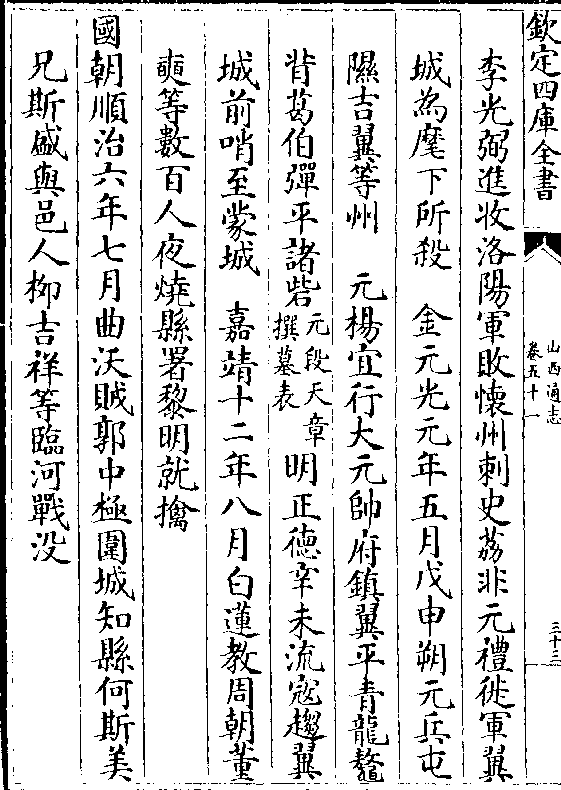 欽定四庫全書
山西通志
卷五十一
三十三
李光弼進收洛陽軍敗懷州刺史荔非元禮徙軍翼
城為麾下所殺　金元光元年五月戊申朔元兵屯
隰吉翼等州　元楊宜行大元帥府鎮翼平青龍鼇
背葛伯彈平諸砦元段天章撰墓表　明正德辛未流寇趨翼
城前哨至蒙城　嘉靖十二年八月白蓮教周朝董
奭等數百人夜燒縣署黎明就擒
國朝順治六年七月曲沃賊郭中極圍城知縣何斯美
兄斯盛與邑人柳吉祥等臨河戰没